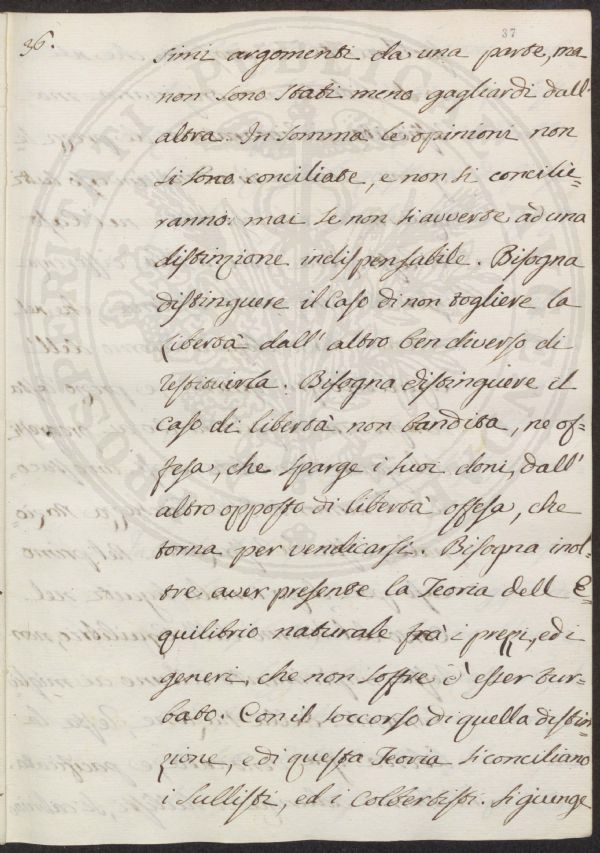 36.
37
simi argomenti da una parte, ma
non sono stati meno gagliardi dall'
altra. In somma le opinioni non
si sono conciliate, e non si concilie=
ranno mai se non si avverte ad una
distinzione indispensabile. Bisogna
distinguere il caso di non togliere la
libertà dall' altro ben diverso di
restituirla. Bisogna distinguere il
caso di libertà non bandita, ne of=
fesa, che sparge i suoi doni, dall'
altro opposto di libertà offesa, che
torna per vendicarsi. Bisogna inol=
tre aver presente la Teoria dell' E=
quilibrio naturale frà i prezzi, ed i
generi, che non soffre d' esser tur=
bato. Con il soccorso di quella distin=
zione, e di questa Teoria si conciliano
i Sullisti, ed i Colbertisti. Si giunge